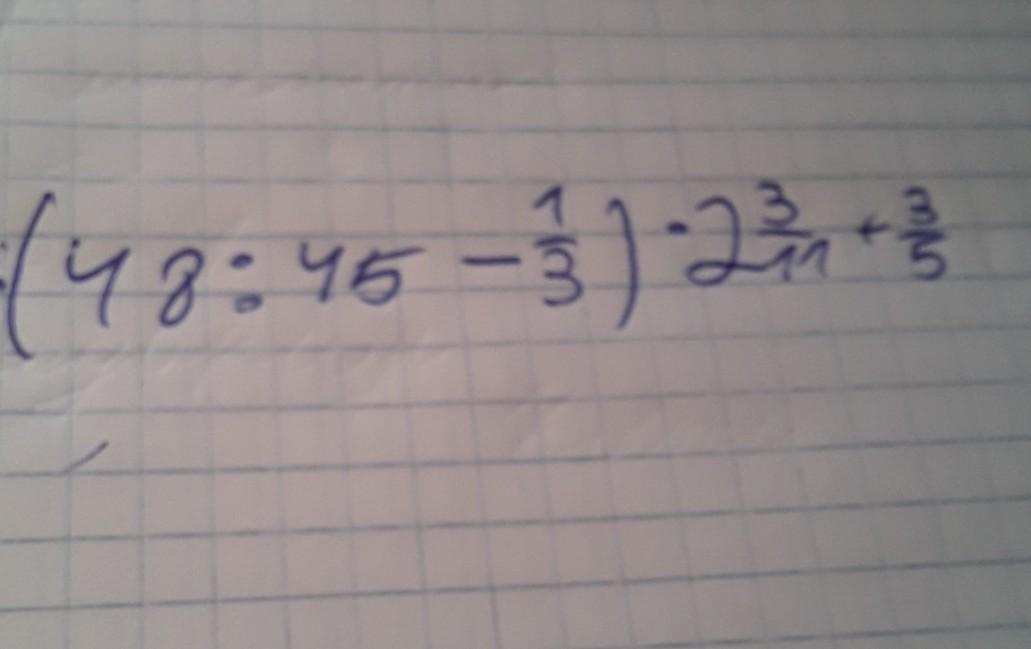 (48:45 - 1/3) · 2 3/11 + 3/5